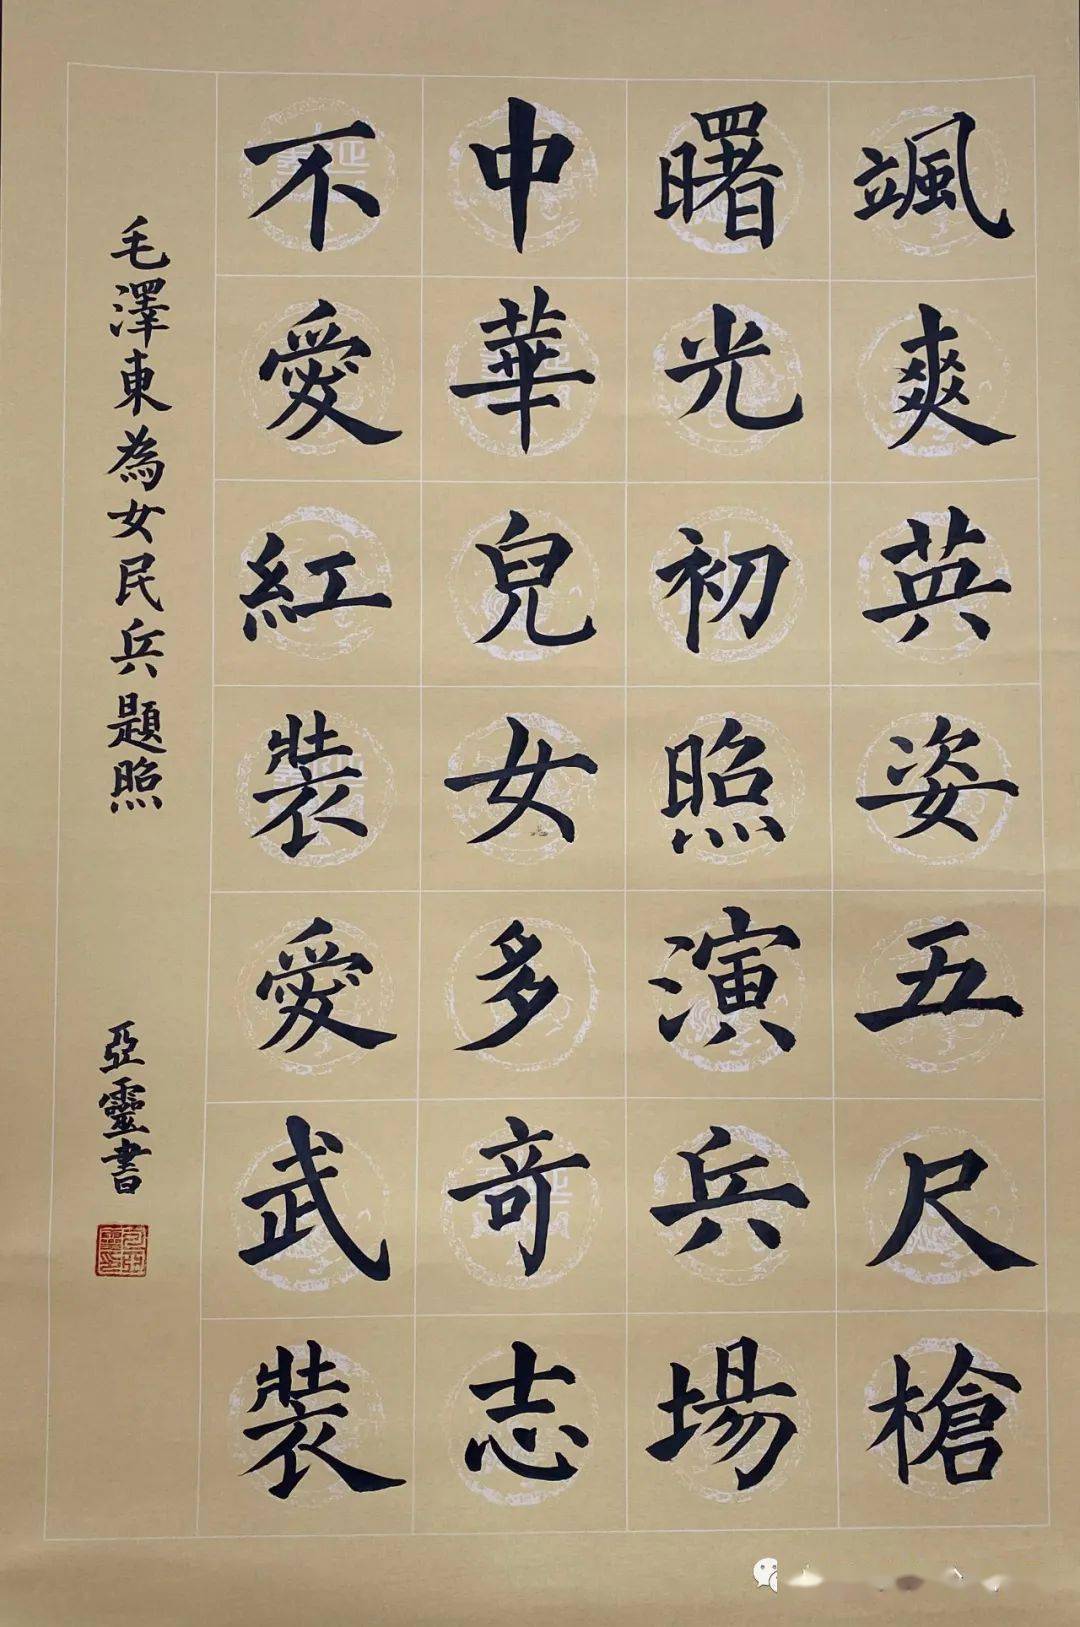 颯爽英姿五尺槍
曙光初照演兵場
中華兒女多奇志
不愛紅裝愛武裝
毛澤東為女民兵題照
亞靈書